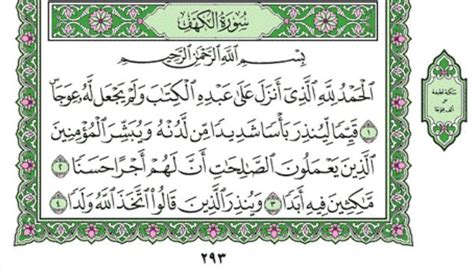 سُورَةُ الكَهْفِ
بِسْمِ اللَّهِ الرَّحْمَٰنِ الرَّحِيمِ
الْحَمْدُ لِلَّهِ الَّذِي أَنزَلَ عَلَىٰ عَبْدِهِ الْكِتَٰبَ وَلَمْ يَجْعَل لَّهُ عِوَجَا ۜ
١ قَيِّمًا لِّيُنذِرَ بَأْسًا شَدِيدًا مِّن لَّدُنْهُ وَيُبَشِّرَ الْمُؤْمِنِينَ
الَّذِينَ يَعْمَلُونَ الصَّٰلِحَٰتِ أَنَّ لَهُمْ أَجْرًا حَسَنًا ٢
مَّٰكِثِينَ فِيهِ أَبَدًا ٣ وَيُنذِرَ الَّذِينَ قَالُوا اتَّخَذَ اللَّهُ وَلَدًا ٤
٢٩٣
سكتة لطيفة